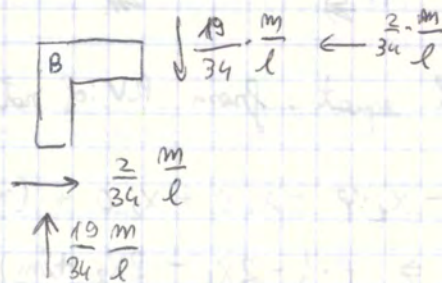 B ↓ 19/34 · m/l ← 2/34 · m/l
→ 2/34 m/l
↑ 19/34 m/l